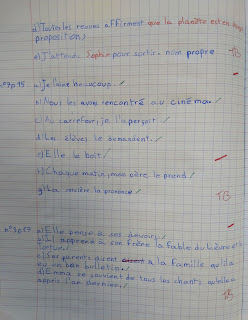 d) Toutes les revues affirment que la planète est en
proposition)
e) J'attends Sophie pour sortir: nom propre
TB
n°7p15 a) Je l'aime beaucoup.
b) Nous les avons rencontré au cinéma
c) Au carrefour, je l'aperçoit.
d) Les élèves le demandent.
e) Elle la boit
f) Chaque matin, mon père le prend
g) La sorcière la prononce
TB
n°9p17 a) Elle pense à ses devoirs.
b) Il apprend à son frère la fable du lièvre et
tortue.
c) Ses parents disent à la famille qu'il a
eu un bon bulletin.
d) Emma se souvient de tous les chants qu'elle a
appris l'an dernier.
TB